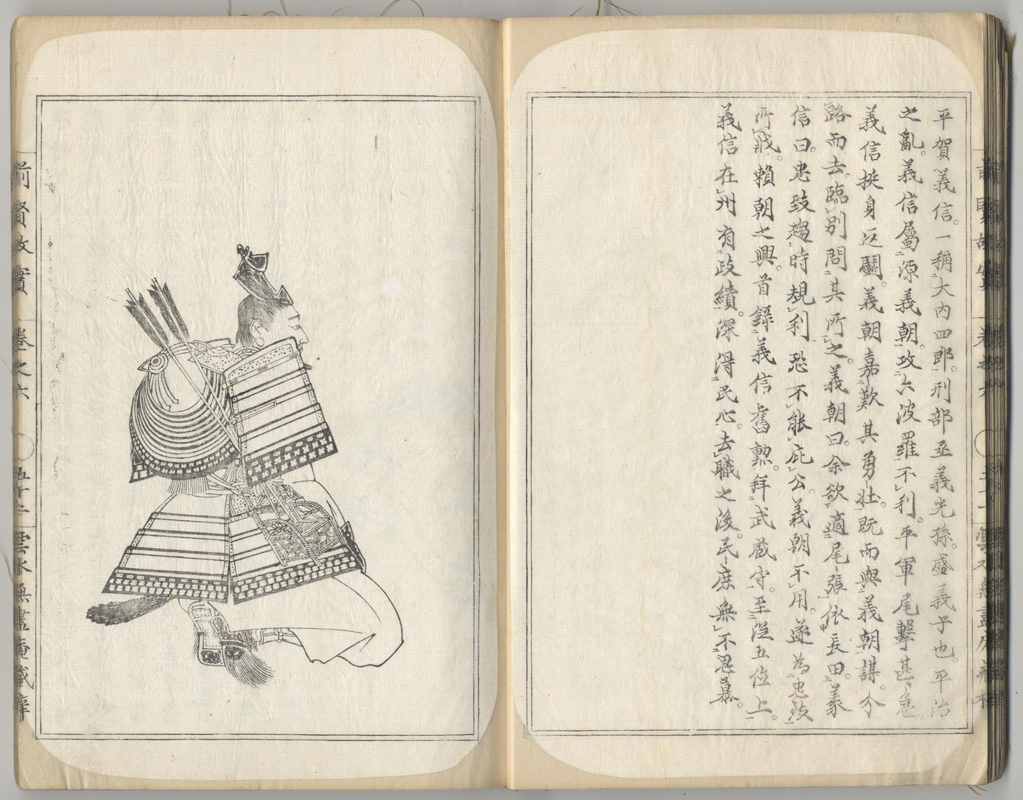 平賀義信。一稱大内四郎。刑部丞義光孫。盛義子也。平治
之亂。義信屬源義朝。攻六波羅不利。平軍尾擊甚急。
義信挾身返鬭。義朝嘉歎其勇壯。既而與義朝謀。分
路而去。臨別問其所之。義朝曰。余欲適尾張依長田。義
信曰。忠致趨時規利。恐不能庇公。義朝不用。遂為忠致
所戕。賴朝之興。首錄義信舊勲。拜武藏守。至從五位上。
義信在州有政績。深得民心。去職之後。民庶無不思慕。
前賢故實 卷之六 〇五十二 雲水無盡庵藏梓